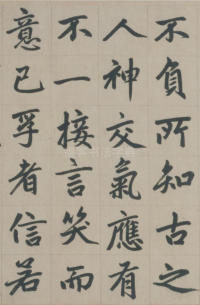 不負所知古之
人神交氣應有
不一接言笑而
意已孚者信若